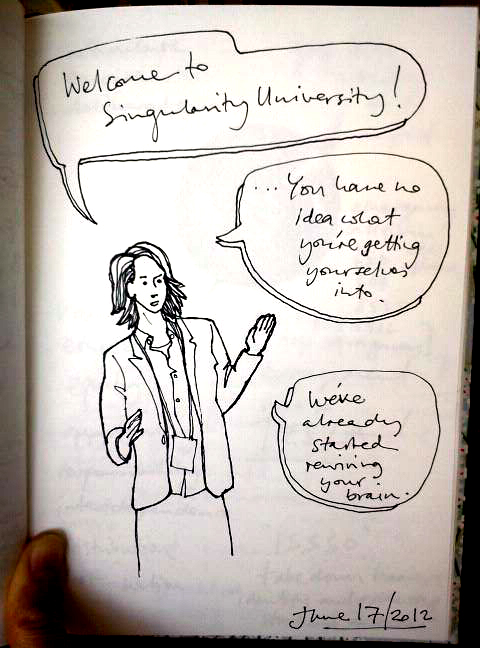 Welcome to
Singularity University!
... You have no
idea what
you're getting
yourselves
into.
We've
already
started
rewiring
your
brain.
June 17/2012